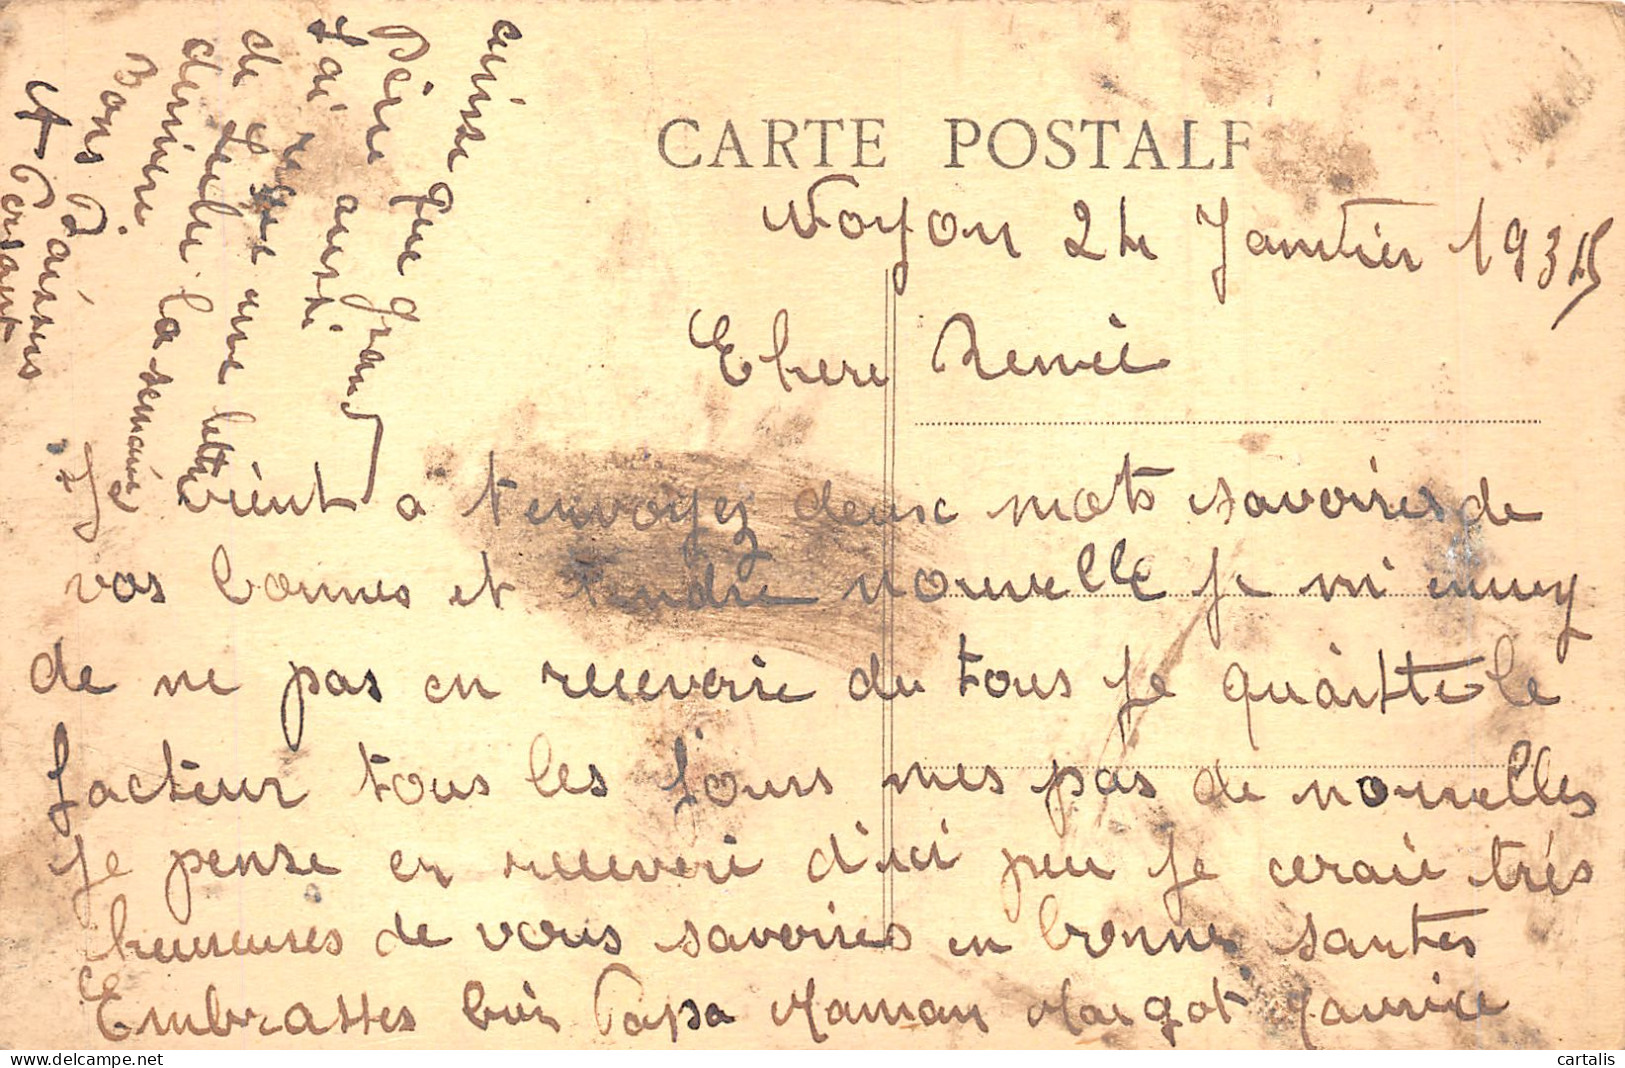 CARTE POSTALE
Noyon 24 Janvier 1935
Chere Renée
Je vient a t envoyez deux mots savoires de
vos bonnes et tendre nouvelle je mi ennuy
de ne pas en recevoire du tous je quaitte le
facteur tous les jours mes pas de nouvelles
Je pense en receveri d'ici peu je ceraie trés
heureuses de vous savoires en bonne santes
Embrasses bien Papa Maman Margot Maurice
ainse que grand
Père
J'ai aussi
reçue une lettre
de
derniere la semaine
Bons Baisers